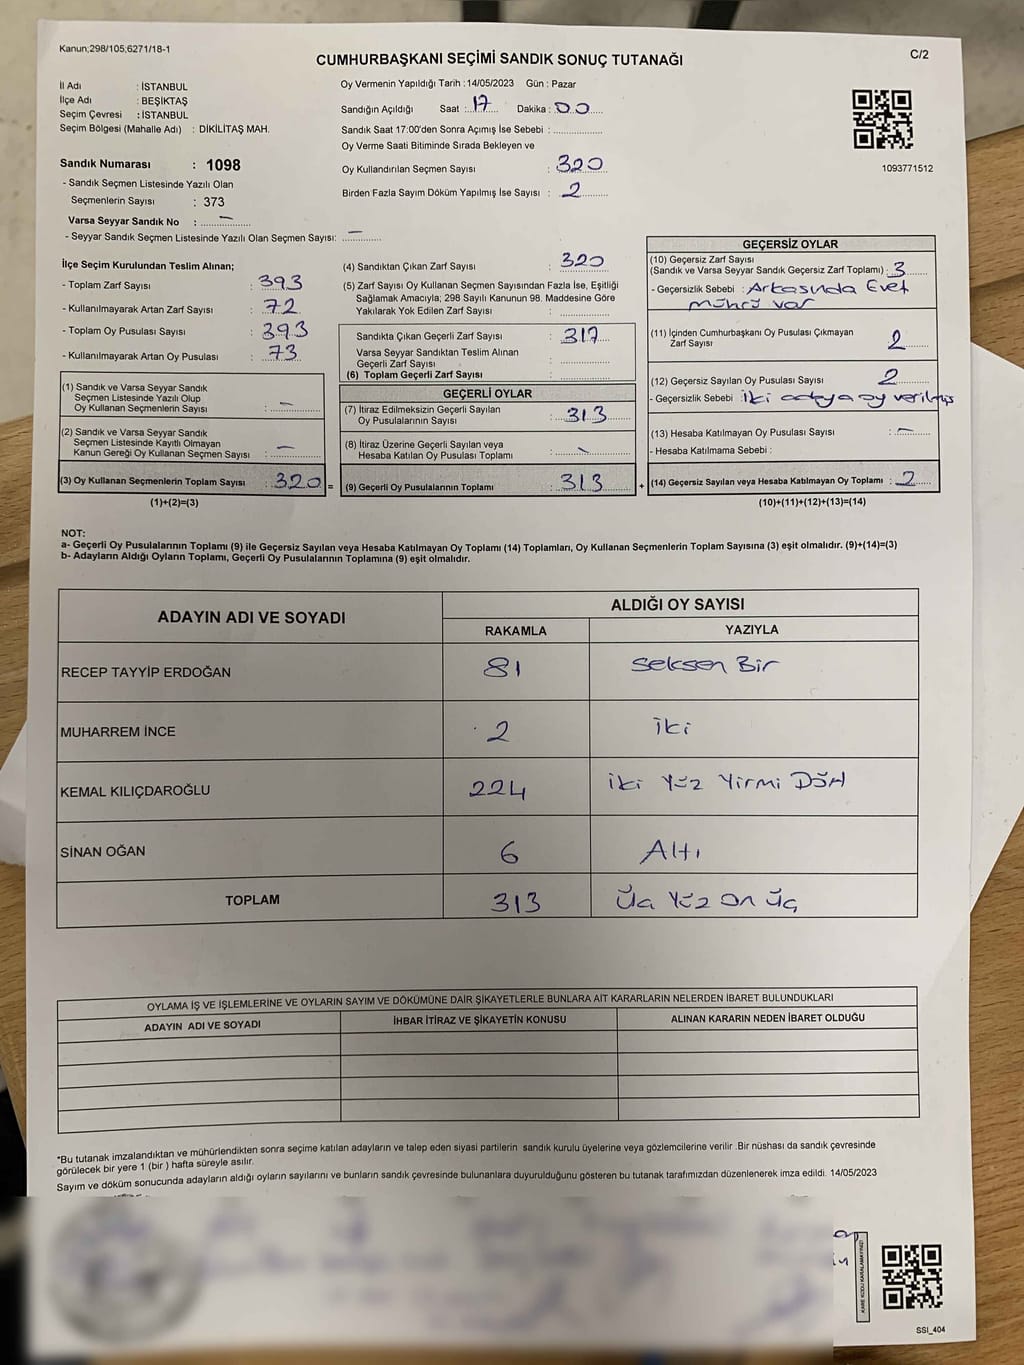 Kanun;298/105;6271/18-1
CUMHURBAŞKANI SEÇİMİ SANDIK SONUÇ TUTANAĞI
C/2
İl Adı : İSTANBUL
İlçe Adı : BEŞİKTAŞ
Seçim Çevresi : İSTANBUL
Seçim Bölgesi (Mahalle Adı) : DİKİLİTAŞ MAH.
Sandık Numarası : 1098
- Sandık Seçmen Listesinde Yazılı Olan
Seçmenlerin Sayısı : 373
Varsa Seyyar Sandık No : –
- Seyyar Sandık Seçmen Listesinde Yazılı Olan Seçmen Sayısı: –
Oy Vermenin Yapıldığı Tarih :14/05/2023 Gün : Pazar
Sandığın Açıldığı Saat : 17 Dakika : 00
Sandık Saat 17:00'den Sonra Açımış İse Sebebi :
Oy Verme Saati Bitiminde Sırada Bekleyen ve
Oy Kullandırılan Seçmen Sayısı : 320
Birden Fazla Sayım Döküm Yapılmış İse Sayısı : 2
1093771512
İlçe Seçim Kurulundan Teslim Alınan;
- Toplam Zarf Sayısı : 393
- Kullanılmayarak Artan Zarf Sayısı : 72
- Toplam Oy Pusulası Sayısı : 393
- Kullanılmayarak Artan Oy Pusulası : 73
(1) Sandık ve Varsa Seyyar Sandık
Seçmen Listesinde Yazılı Olup
Oy Kullanan Seçmenlerin Sayısı : –
(2) Sandık ve Varsa Seyyar Sandık
Seçmen Listesinde Kayıtlı Olmayan
Kanun Gereği Oy Kullanan Seçmen Sayısı : –
(3) Oy Kullanan Seçmenlerin Toplam Sayısı : 320 =
(1)+(2)=(3)
(4) Sandıktan Çıkan Zarf Sayısı : 320
(5) Zarf Sayısı Oy Kullanan Seçmen Sayısından Fazla İse, Eşitliği
Sağlamak Amacıyla; 298 Sayılı Kanunun 98. Maddesine Göre
Yakılarak Yok Edilen Zarf Sayısı :
Sandıkta Çıkan Geçerli Zarf Sayısı : 317
Varsa Seyyar Sandıktan Teslim Alınan
Geçerli Zarf Sayısı :
(6) Toplam Geçerli Zarf Sayısı :
GEÇERLİ OYLAR
(7) İtiraz Edilmeksizin Geçerli Sayılan
Oy Pusulalarının Sayısı : 313
(8) İtiraz Üzerine Geçerli Sayılan veya
Hesaba Katılan Oy Pusulası Toplamı : –
(9) Geçerli Oy Pusulalarının Toplamı : 313 +
GEÇERSİZ OYLAR
(10) Geçersiz Zarf Sayısı
(Sandık ve Varsa Seyyar Sandık Geçersiz Zarf Toplamı) : 3
- Geçersizlik Sebebi : Arkasında Evet
mührü var
(11) İçinden Cumhurbaşkanı Oy Pusulası Çıkmayan
Zarf Sayısı 2
(12) Geçersiz Sayılan Oy Pusulası Sayısı 2
- Geçersizlik Sebebi iki adaya oy verilmiş
(13) Hesaba Katılmayan Oy Pusulası Sayısı : –
- Hesaba Katılmama Sebebi :
(14) Geçersiz Sayılan veya Hesaba Katılmayan Oy Toplamı : 2
(10)+(11)+(12)+(13)=(14)
NOT:
a- Geçerli Oy Pusulalarının Toplamı (9) ile Geçersiz Sayılan veya Hesaba Katılmayan Oy Toplamı (14) Toplamları, Oy Kullanan Seçmenlerin Toplam Sayısına (3) eşit olmalıdır. (9)+(14)=(3)
b- Adayların Aldığı Oyların Toplamı, Geçerli Oy Pusulalarının Toplamına (9) eşit olmalıdır.
ADAYIN ADI VE SOYADI
ALDIĞI OY SAYISI
RAKAMLA YAZIYLA
RECEP TAYYİP ERDOĞAN 81 Seksen Bir
MUHARREM İNCE 2 İki
KEMAL KILIÇDAROĞLU 224 iki Yüz Yirmi Dört
SİNAN OĞAN 6 Altı
TOPLAM 313 Üç Yüz On Üç
OYLAMA İŞ VE İŞLEMLERİNE VE OYLARIN SAYIM VE DÖKÜMÜNE DAİR ŞİKAYETLERLE BUNLARA AİT KARARLARIN NELERDEN İBARET BULUNDUKLARI
ADAYIN ADI VE SOYADI İHBAR İTİRAZ VE ŞİKAYETİN KONUSU ALINAN KARARIN NEDEN İBARET OLDUĞU
*Bu tutanak imzalandıktan ve mühürlendikten sonra seçime katılan adayların ve talep eden siyasi partilerin sandık kurulu üyelerine veya gözlemcilerine verilir .Bir nüshası da sandık çevresinde
görülecek bir yere 1 (bir ) hafta süreyle asılır.
Sayım ve döküm sonucunda adayların aldığı oyların sayılarını ve bunların sandık çevresinde bulunanlara duyurulduğunu gösteren bu tutanak tarafımızdan düzenlenerek imza edildi. 14/05/2023
KARE KODU KARALAMAYINIZ!
SSI_404